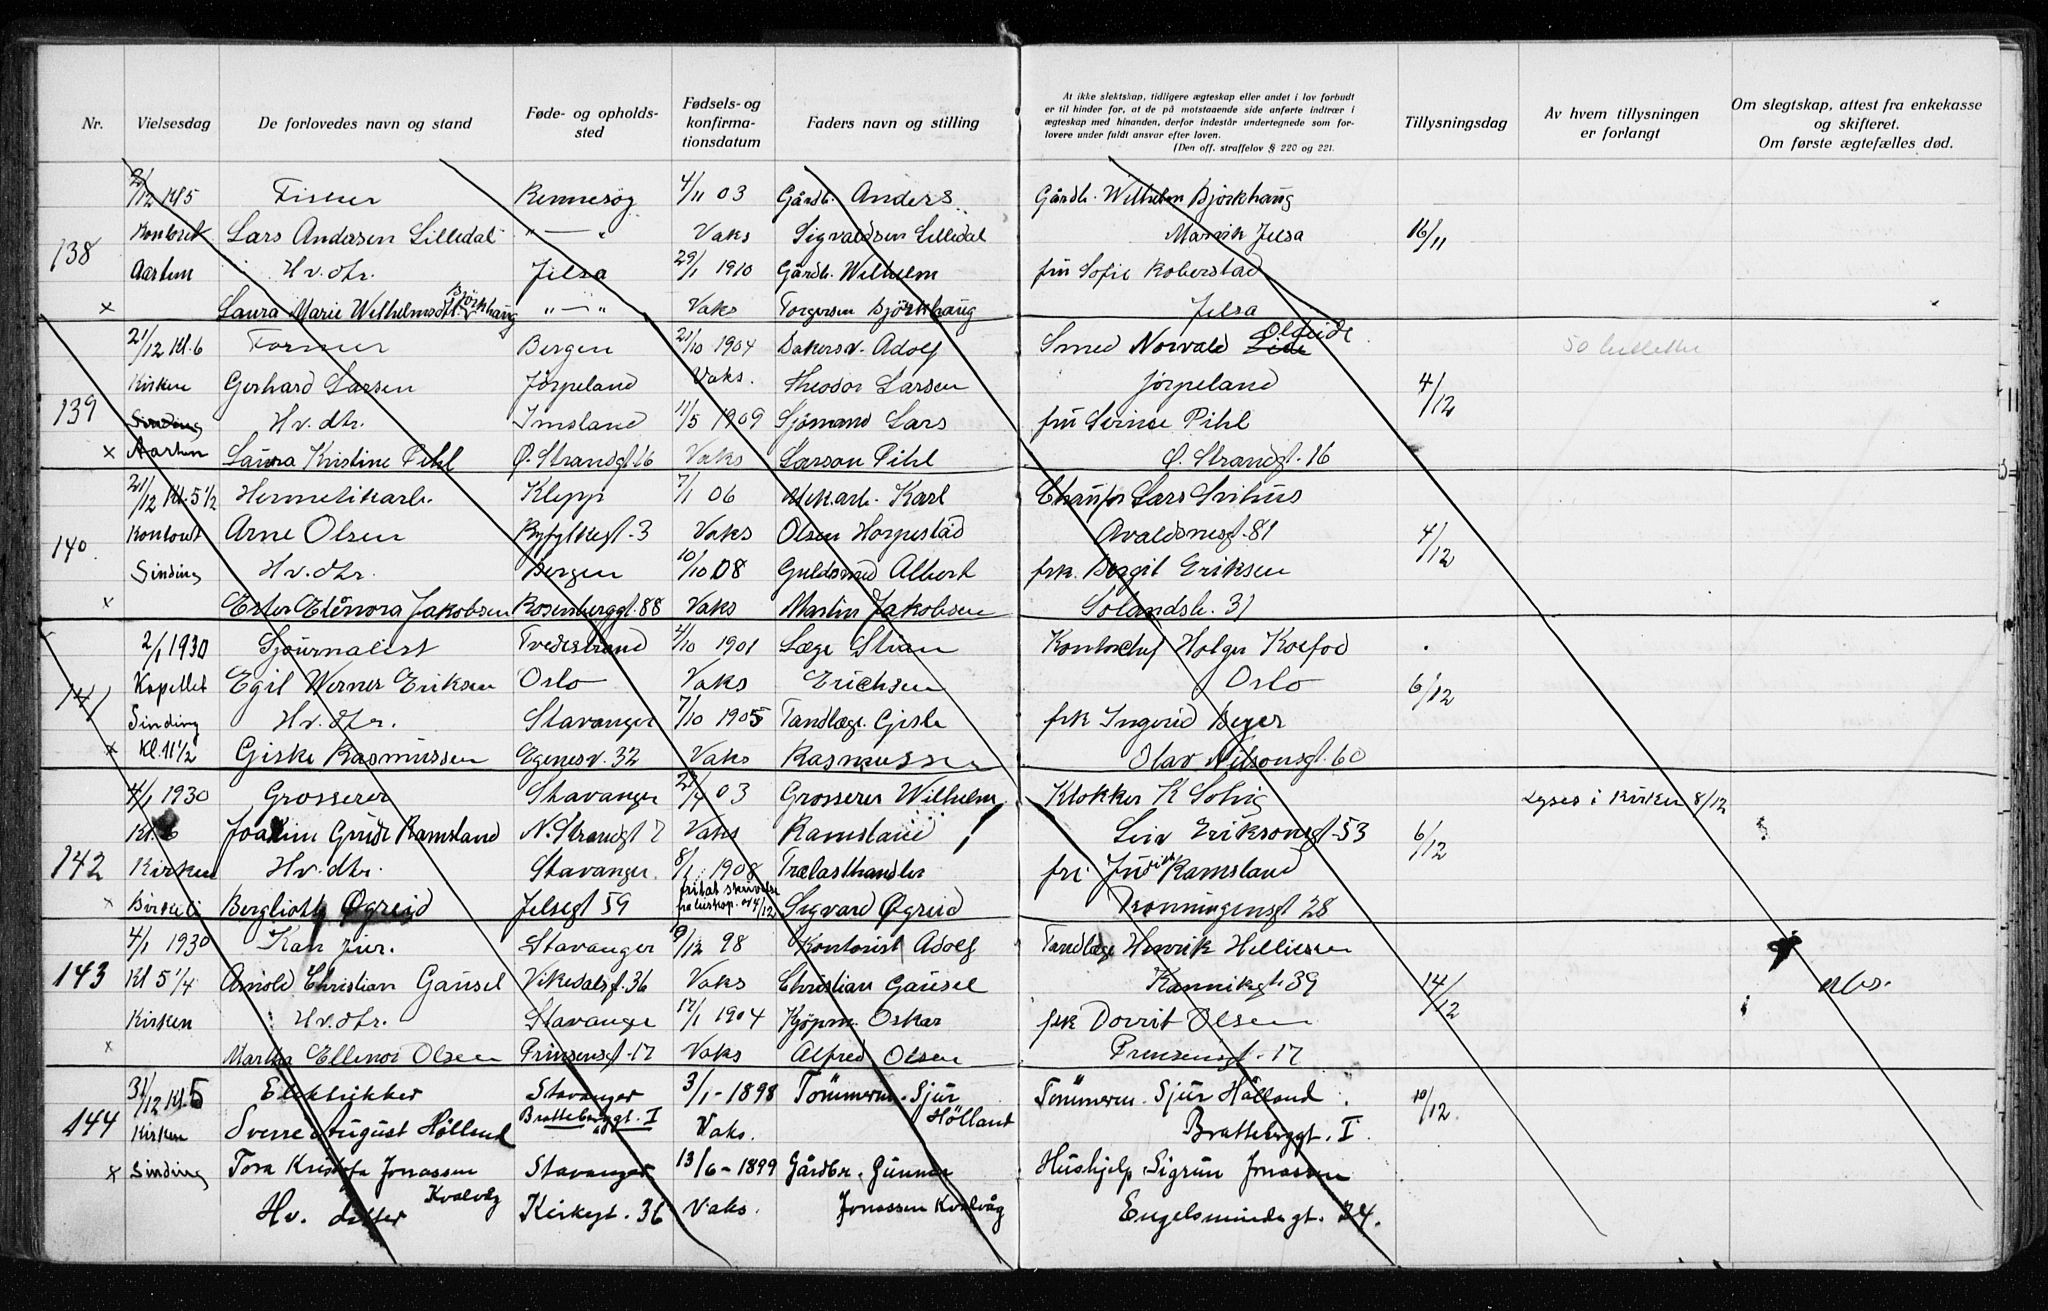 Nr.
Vielsesdag
De forlovedes navn og stand
Føde- og opholds-
sted
Fødsels- og
konfirma-
tionsdatum
Faders navn og stilling
At ikke slektskap, tidligere ægteskap eller andet i lov forbudt
er til hinder for, at de på motstaaende side anførte indtrær i
ægteskap med hinanden, derfor indestår undertegnede som for-
lovere under fuldt ansvar efter loven.
(Den off. straffelov § 220 og 221.
Tillysningsdag
Av hvem tillysningen
er forlangt
Om slegtskap, attest fra enkekasse
og skifteret.
Om første ægtefælles død.
2/12 Kl 5 Fisker Rennesøy 4/11 03 Gårdb. Anders Gårdb. Wilhelm Bjørkhaug
138 Kontoret Lars Andersen Lilledal " — " Vaks Sigvaldsen Lilledal Marvik Jelsa 16/11
Aarthun Hv. dtr. Jelsa 29/1 1910 Gårdb. Wilhelm fru Sofie
x Laura Marie Wilhelmsdtr. Bjørkhaug " — " Vaks Torgersen Bjørkhaug Jelsa
21/12 Kl. 6 Former Bergen 21/10 1904 Adolf Smed Norvald Oldeide
139 Kirken Gerhard Larsen Jørpeland Vaks. Theodor Larsen Jørpeland 4/12
Sinding Hv. dtr. Imsland 11/5 1909 Sjømand Lars fru Serine Pihl
x Aarthun Laura Kristine Pihl Ø. Strandgt. 16 Vaks Larsen Pihl Ø. Strandgt. 16
21/12 Kl. 5 1/2 Hermetikarb. Klepp 7/1 06 Karl Lars Svihus
140. Kontoret Arne Olsen Ryfylkegt. 3 Vaks Olsen Horpestad Avaldsnesgt. 81 4/12
Sinding Hv. dtr. Bergen 10/10 08 Guldsmed Albert frk. Bergit Eriksen
x Ester Elenora Jakobsen Rosenberggt. 88 Vaks Martin Jakobsen Solandsb. 31
2/1 1930 Sjournalist Tvedestrand 4/10 1901 Læge Stian Kontorchef Holger Koefod
141 Kapellet Egil Werner Eriksen Oslo Vaks Erichsen Oslo 6/12
Sinding Hv. dtr. Stavanger 7/10 1905 Tandlæge Giske frk Ingerid Beyer
x Kl. 11 1/2 Giske Rasmussen Egenesv. 32 Vaks Rasmussen Olav Nilsonsgt. 60
4/1 1930 Grosserer Stavanger 03 Grosserer Wilhelm Klokker K Solvig Lyses i Kirken 8/12
Kl. 6 Joakim Gjride Ramsland N. Strandgt 7 Vaks Ramsland Leiv Eriksonsgt. 53 6/12
142 Kirken Hv. dtr. Stavanger 8/1 1908 Trælasthandler Ramsland
x Birkeli Bergliott Øgreid Jelsegt 59 fritat skrivelse fra biskop. av 4/12 Sigvard Øgreid Dronningensgt 28
4/1 1930 Kan jur. Stavanger 9/12 98 Kontorist Adolf Tandlæge Henrik Helliesen
143 Kl 5 1/4 Arnold Christian Gausel Vikedalsg. 36 Vaks Christian Gausel Kannikgt. 39 14/12 obs.
Kirken Hv. dtr. Stavanger 17/1 1904 Kjøpm. Oskar frk Dorrit Olsen
x Martha Ellenor Olsen Prinsensgt. 17 Vaks Alfred Olsen Prinsensgt. 17
31/12 Kl. 5 Elektrikker Stavanger 3/1 - 1898 Tømmerm. Sjur Tømmerm. Sjur Hølland. 10/12.
144 Kirken Sverre August Hølland Bratteberggt. I Vaks. Hølland Bratteberggt. I.
x Sinding Tora Kristofa Jonassen Stavanger 13/6 - 1899 Gårdbr. Gunnar Hushjelp Sigrun Jonassen
Kvalvåg
Hv. datter Kirkegt. 36 Vaks. Jonassen Kvalvåg Engelsmindegt. 24.